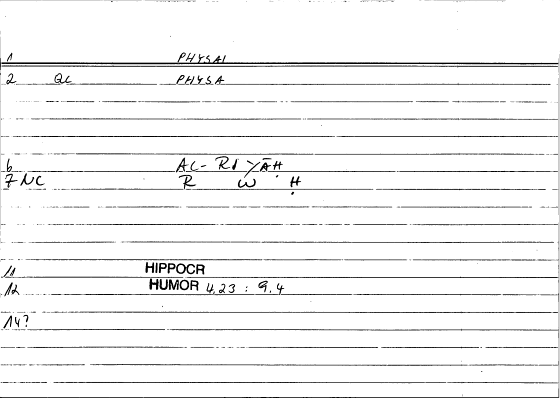 1 PHYSAI
2 QC PHYSA
6 AC- RI > ĀḤ
7 NC R W Ḥ
11 HIPPOCR
12 HUMOR 4,23 : 9.4
14?